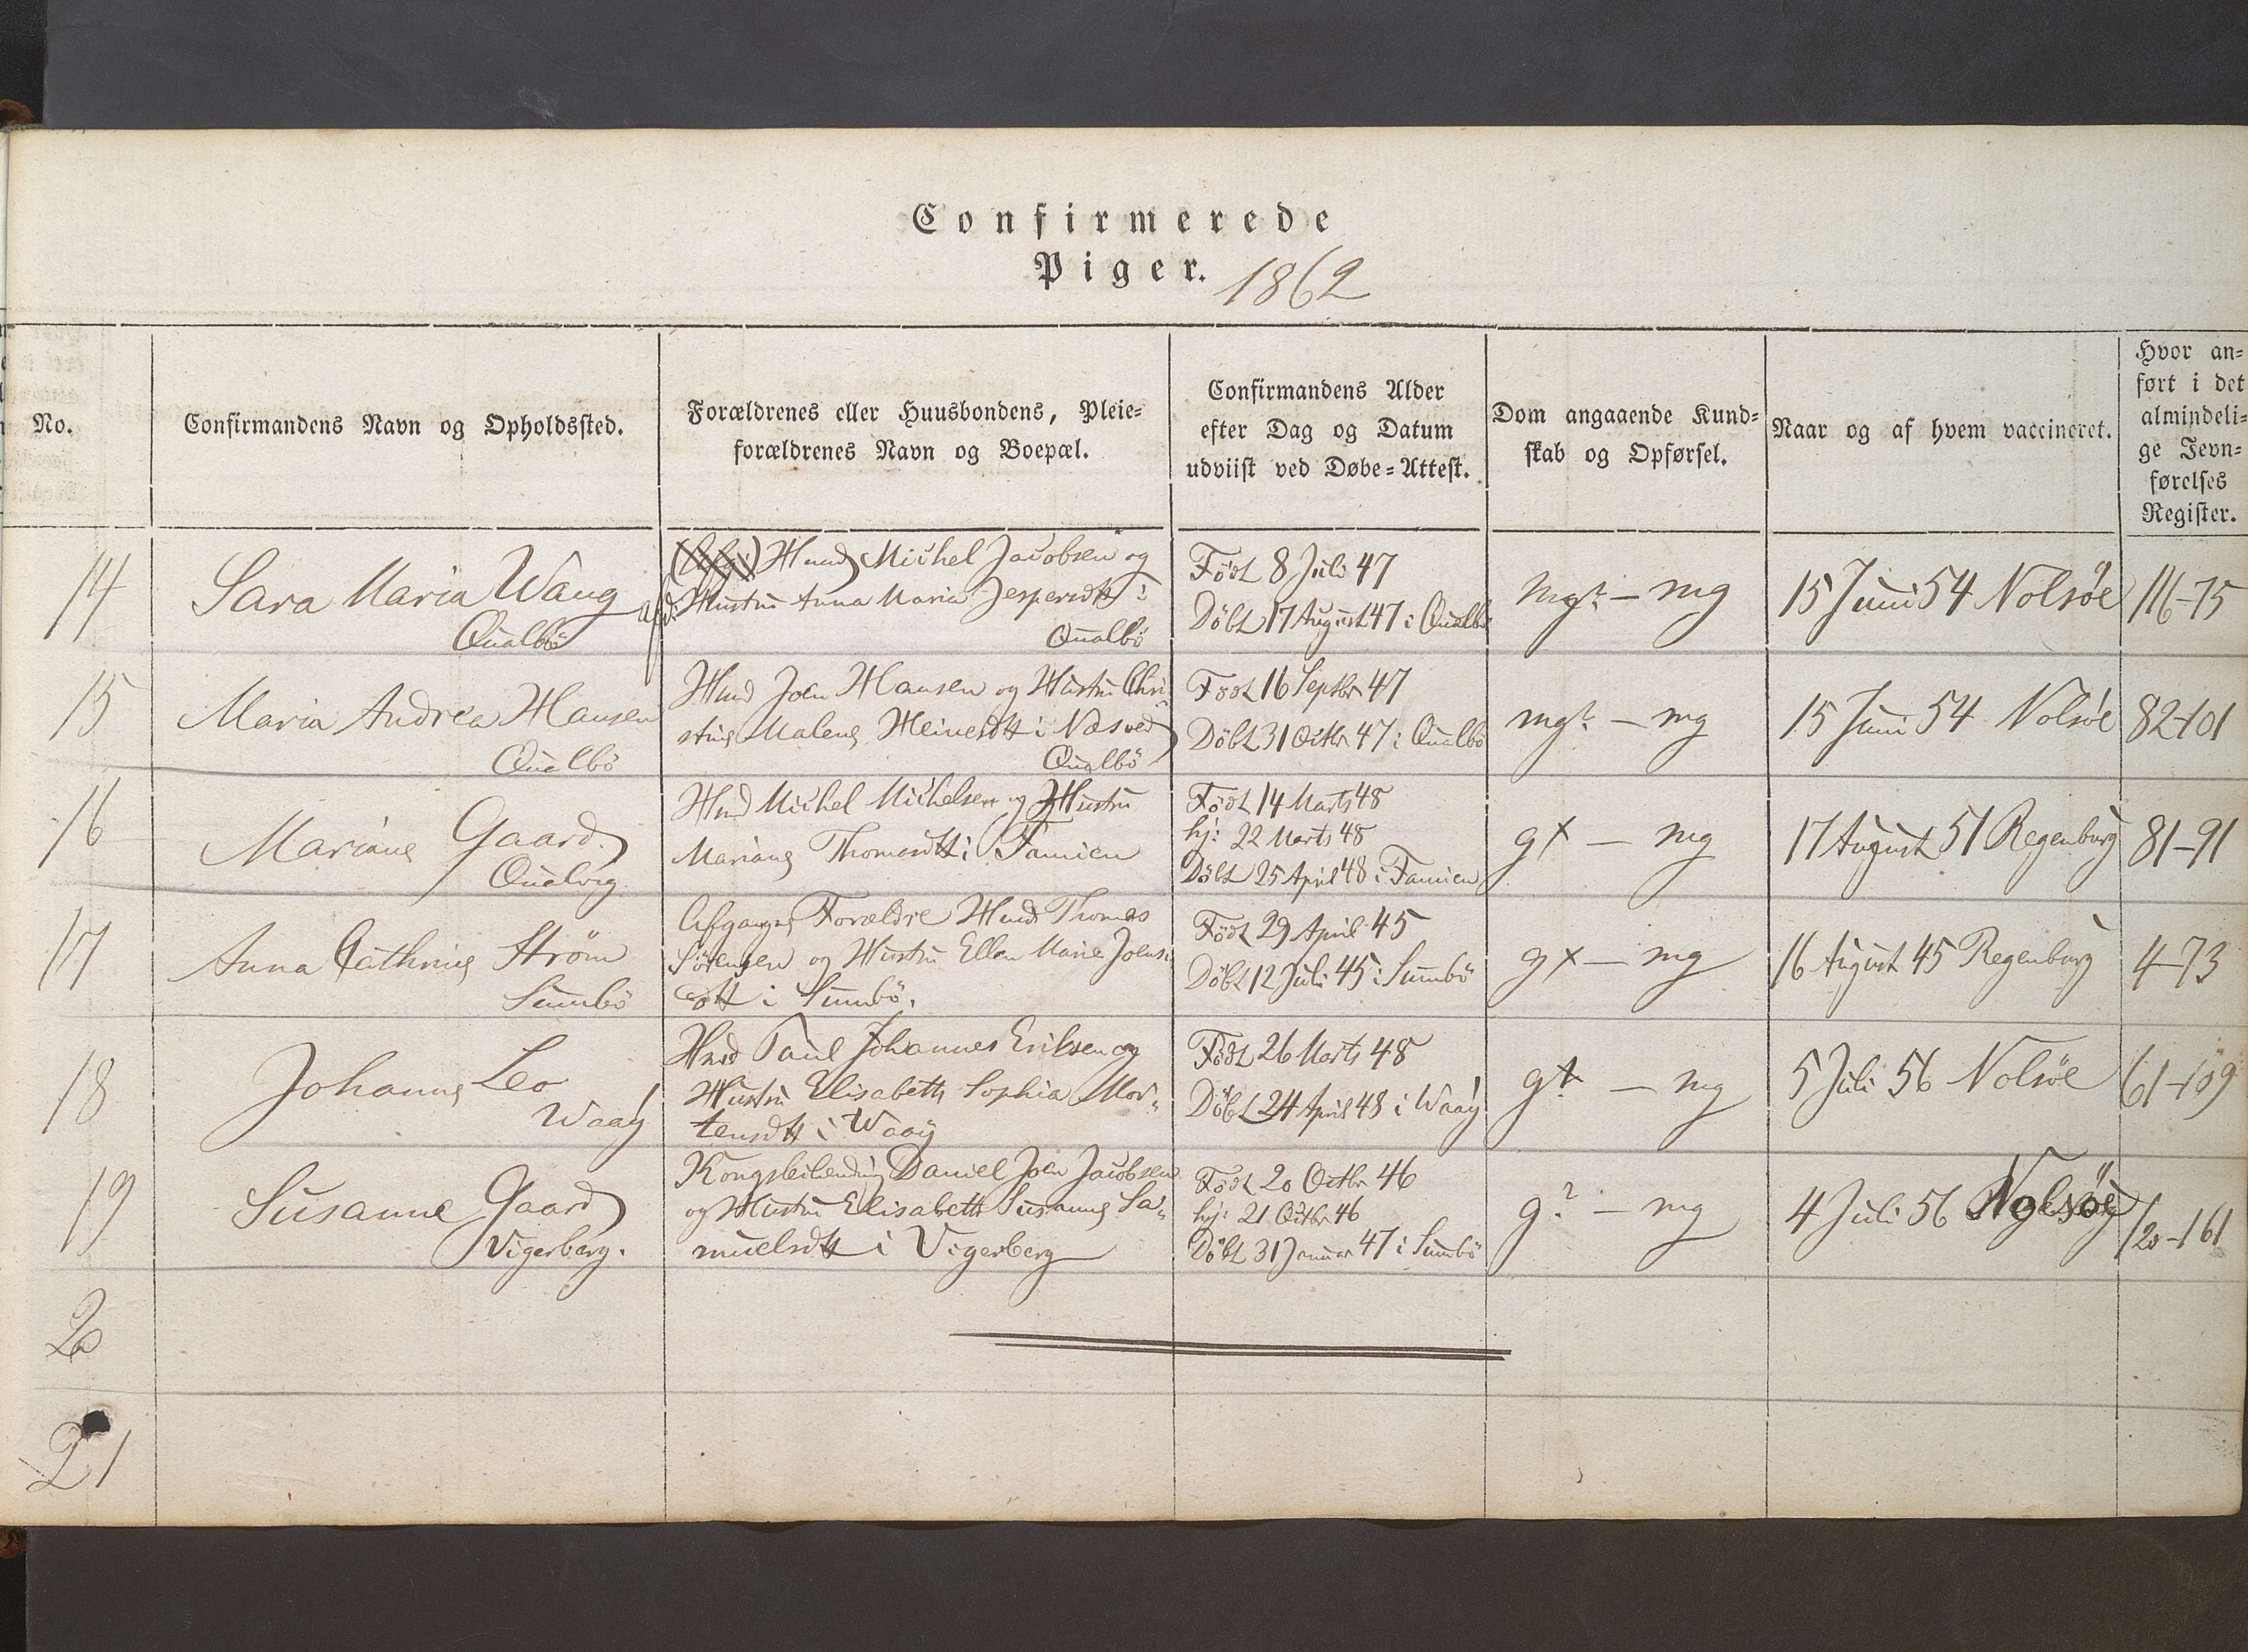 Confirmerede
Piger. 1862
No.
Confirmandens Navn og Opholdssted.
Forældrenes eller Huusbondens, Pleie=
forældrenes Navn og Boepæl.
Confirmandens Alder
efter Dag og Datum
udviist ved Døbe=Attest.
Dom angaaende Kund=
skab og Opførsel.
Naar og af hvem vaccineret.
Hvor an=
ført i det
almindeli=
ge Jevn=
førelses
Register.
14
Sara Maria Waag
Qualbö
Michel Jacobsen og
Hustru Anna Maria Jespersdtt i
Qualbö
Födt 8 Juli 47
Döbt 17 August 47 i Qualbö
mg? – mg
15 Juni 54 Nolsöe
116-75
15
Maria Andrea Hansen
Qualbö
Hmd Joen Hansen og Hustru Chri
stine Malene Heinesdtt i Næs ved
Qualbö
Födt 16 Septbr 47
Döbt 31 Octbr 47 i Qualbö
mg? – mg
15 Juni 54 Nolsöe
82-101
16
Mariane Gaard
Qualvig
Hmd Michel Michelsen og Hustru
Mariane Thomasdtt i Famien
Födt 14 Marts 48
hj: 22 Marts 48
Döbt 25 April 48 i Famien
g+ – mg
17 August 51 Regenburg
81-91
17
Anna Cathrine Ström
Sumbö
Afgangne Forældre Hmd Thomas
Sörensen og Hustru Ellen Marie Joens
dtt i Sumbö.
Födt 29 April 45
Döbt 12 Juli 45 i Sumbö
g+ – mg
16 August 45 Regenburg
4-73
18
Johanne Leo
Waag
Hmd Paul Johannes Eriksen og
Hustru Elisabeth Sophia Mor=
tensdtt i Waag
Födt 26 Marts 48
Döbt 24 April 48 i Waag
g+ – mg
5 Juli 56 Nolsöe
61-109
19
Susanne Gaard
Vigerberg.
Daniel Joen Jacobsen
og Hustru Elisabeth Susanne Sa=
muelsdtt i Vigerberg
Födt 20 Octbr 46
hj: 21 Octbr 46
Döbt 31 Januar 47 i Sumbö
g? – mg
4 Juli 56 Nolsöe
120-161
20
21